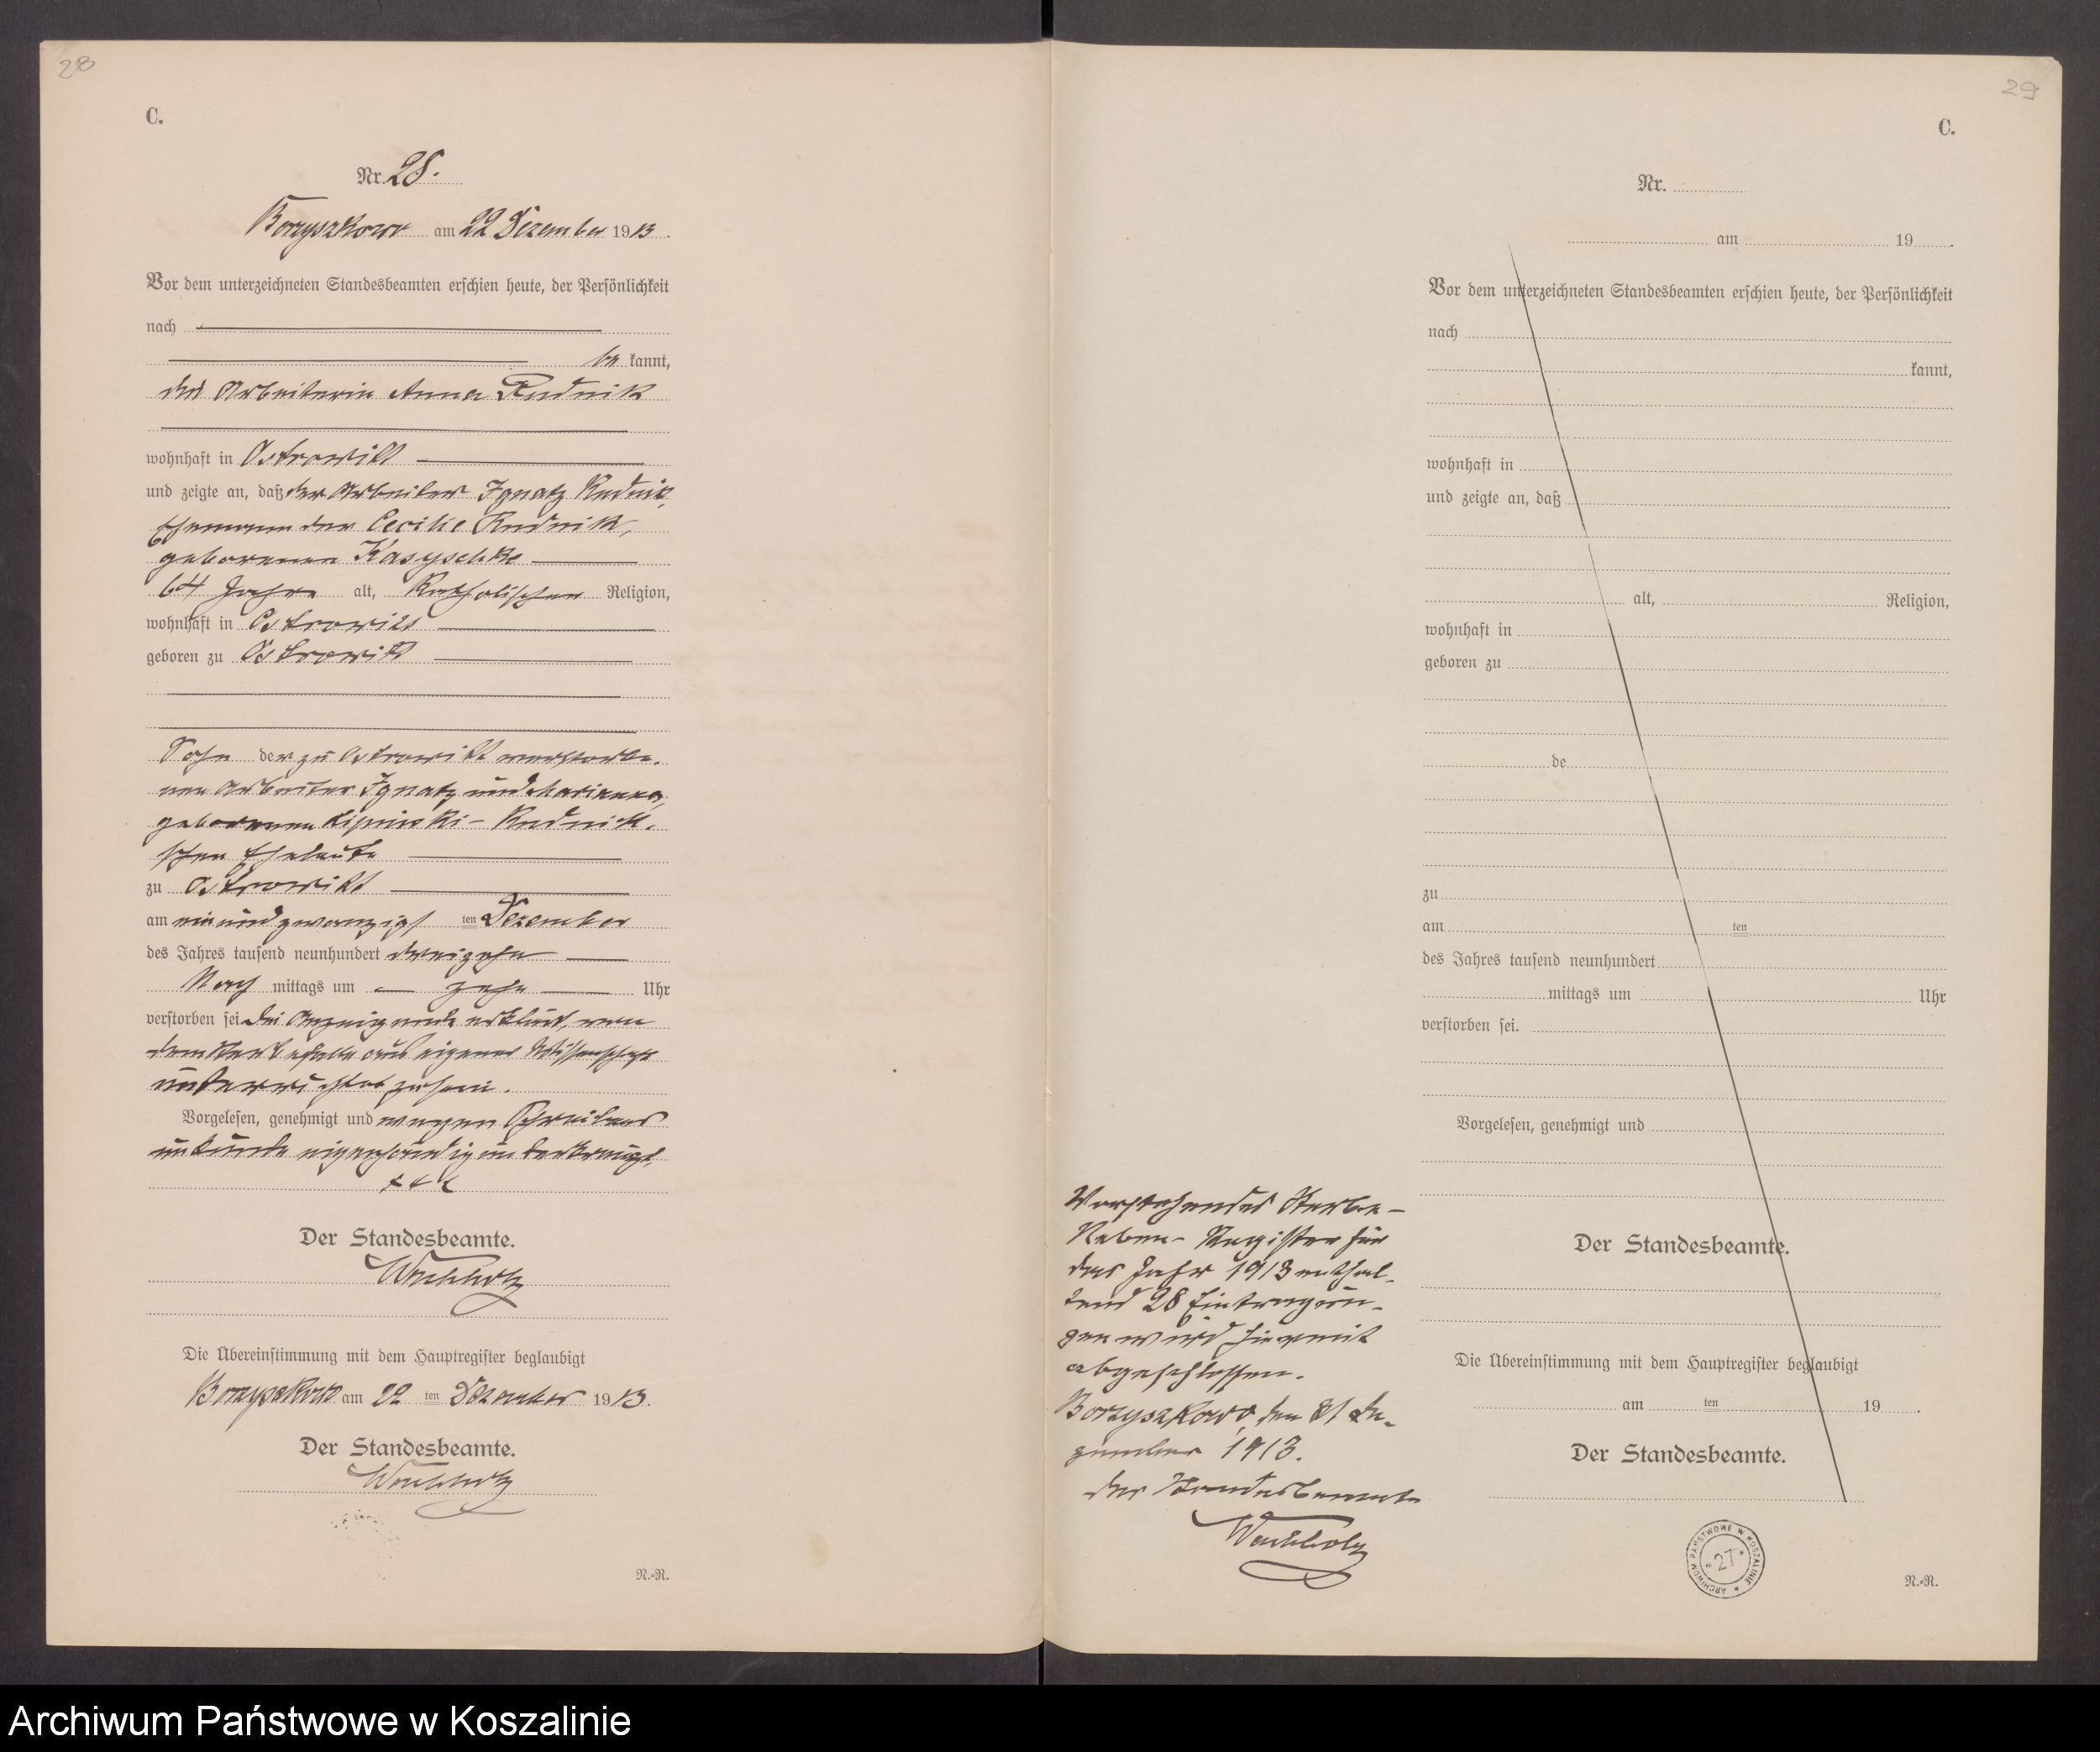 28
C.
Nr. 28.
Borzyszkowo am 22 Dezember 1913.
Vor dem unterzeichneten Standesbeamten erschien heute, der Persönlichkeit
nach
be kannt,
die Arbeiterin Anna Rudnik
wohnhaft in Ostrowitt
und zeigte an, daß der Arbeiter Ignatz Rudnik,
Ehemann der Cecilie Rudnik,
geborenen
64 Jahre alt, Katholischer Religion,
wohnhaft in Ostrowitt
geboren zu Ostrowitt
Sohn der zu Ostrowitt verstorbe-
nen Arbeiter Ignatz und Marianna,
geborenen Lipinski - Rudnik-
schen Eheleute
zu Ostrowitt
am ein und zwanzigs ten Dezember
des Jahres tausend neunhundert dreizehn
Nach mittags um zehn Uhr
verstorben sei. Die Anzeigende erklärt, von
dem Sterbefalle aus eigener Wissenschaft
unterrichtet zu sein.
Vorgelesen, genehmigt und wegen Schreibens
unkunde eigenhändig unterkreuzt.
+++
Der Standesbeamte.
Wachholz
Die Übereinstimmung mit dem Hauptregister beglaubigt
Borzyszkowo am 22 ten Dezember 1913.
Der Standesbeamte.
Wachholz
N.-R.
29
C.
Nr.
am 19 .
Vor dem unterzeichneten Standesbeamten erschien heute, der Persönlichkeit
nach
kannt,
wohnhaft in
und zeigte an, daß
alt, Religion,
wohnhaft in
geboren zu
de
zu
am ten
des Jahres tausend neunhundert
mittags um Uhr
verstorben sei.
Vorgelesen, genehmigt und
Vorstehendes Sterbe-
Neben-Register für
das Jahr 1913 enthal-
tend 28 Eintragun-
gen wird hiermit
abgeschlossen.
Borzyszkowo, den 31 De-
zember 1913.
Der Standesbeamte
Wachholz
Der Standesbeamte.
Die Übereinstimmung mit dem Hauptregister beglaubigt
am ten 19 .
Der Standesbeamte.
ARCHIWUM PAŃSTWOWE W KOSZALINIE
27
N.-R.
Archiwum Państwowe w Koszalinie